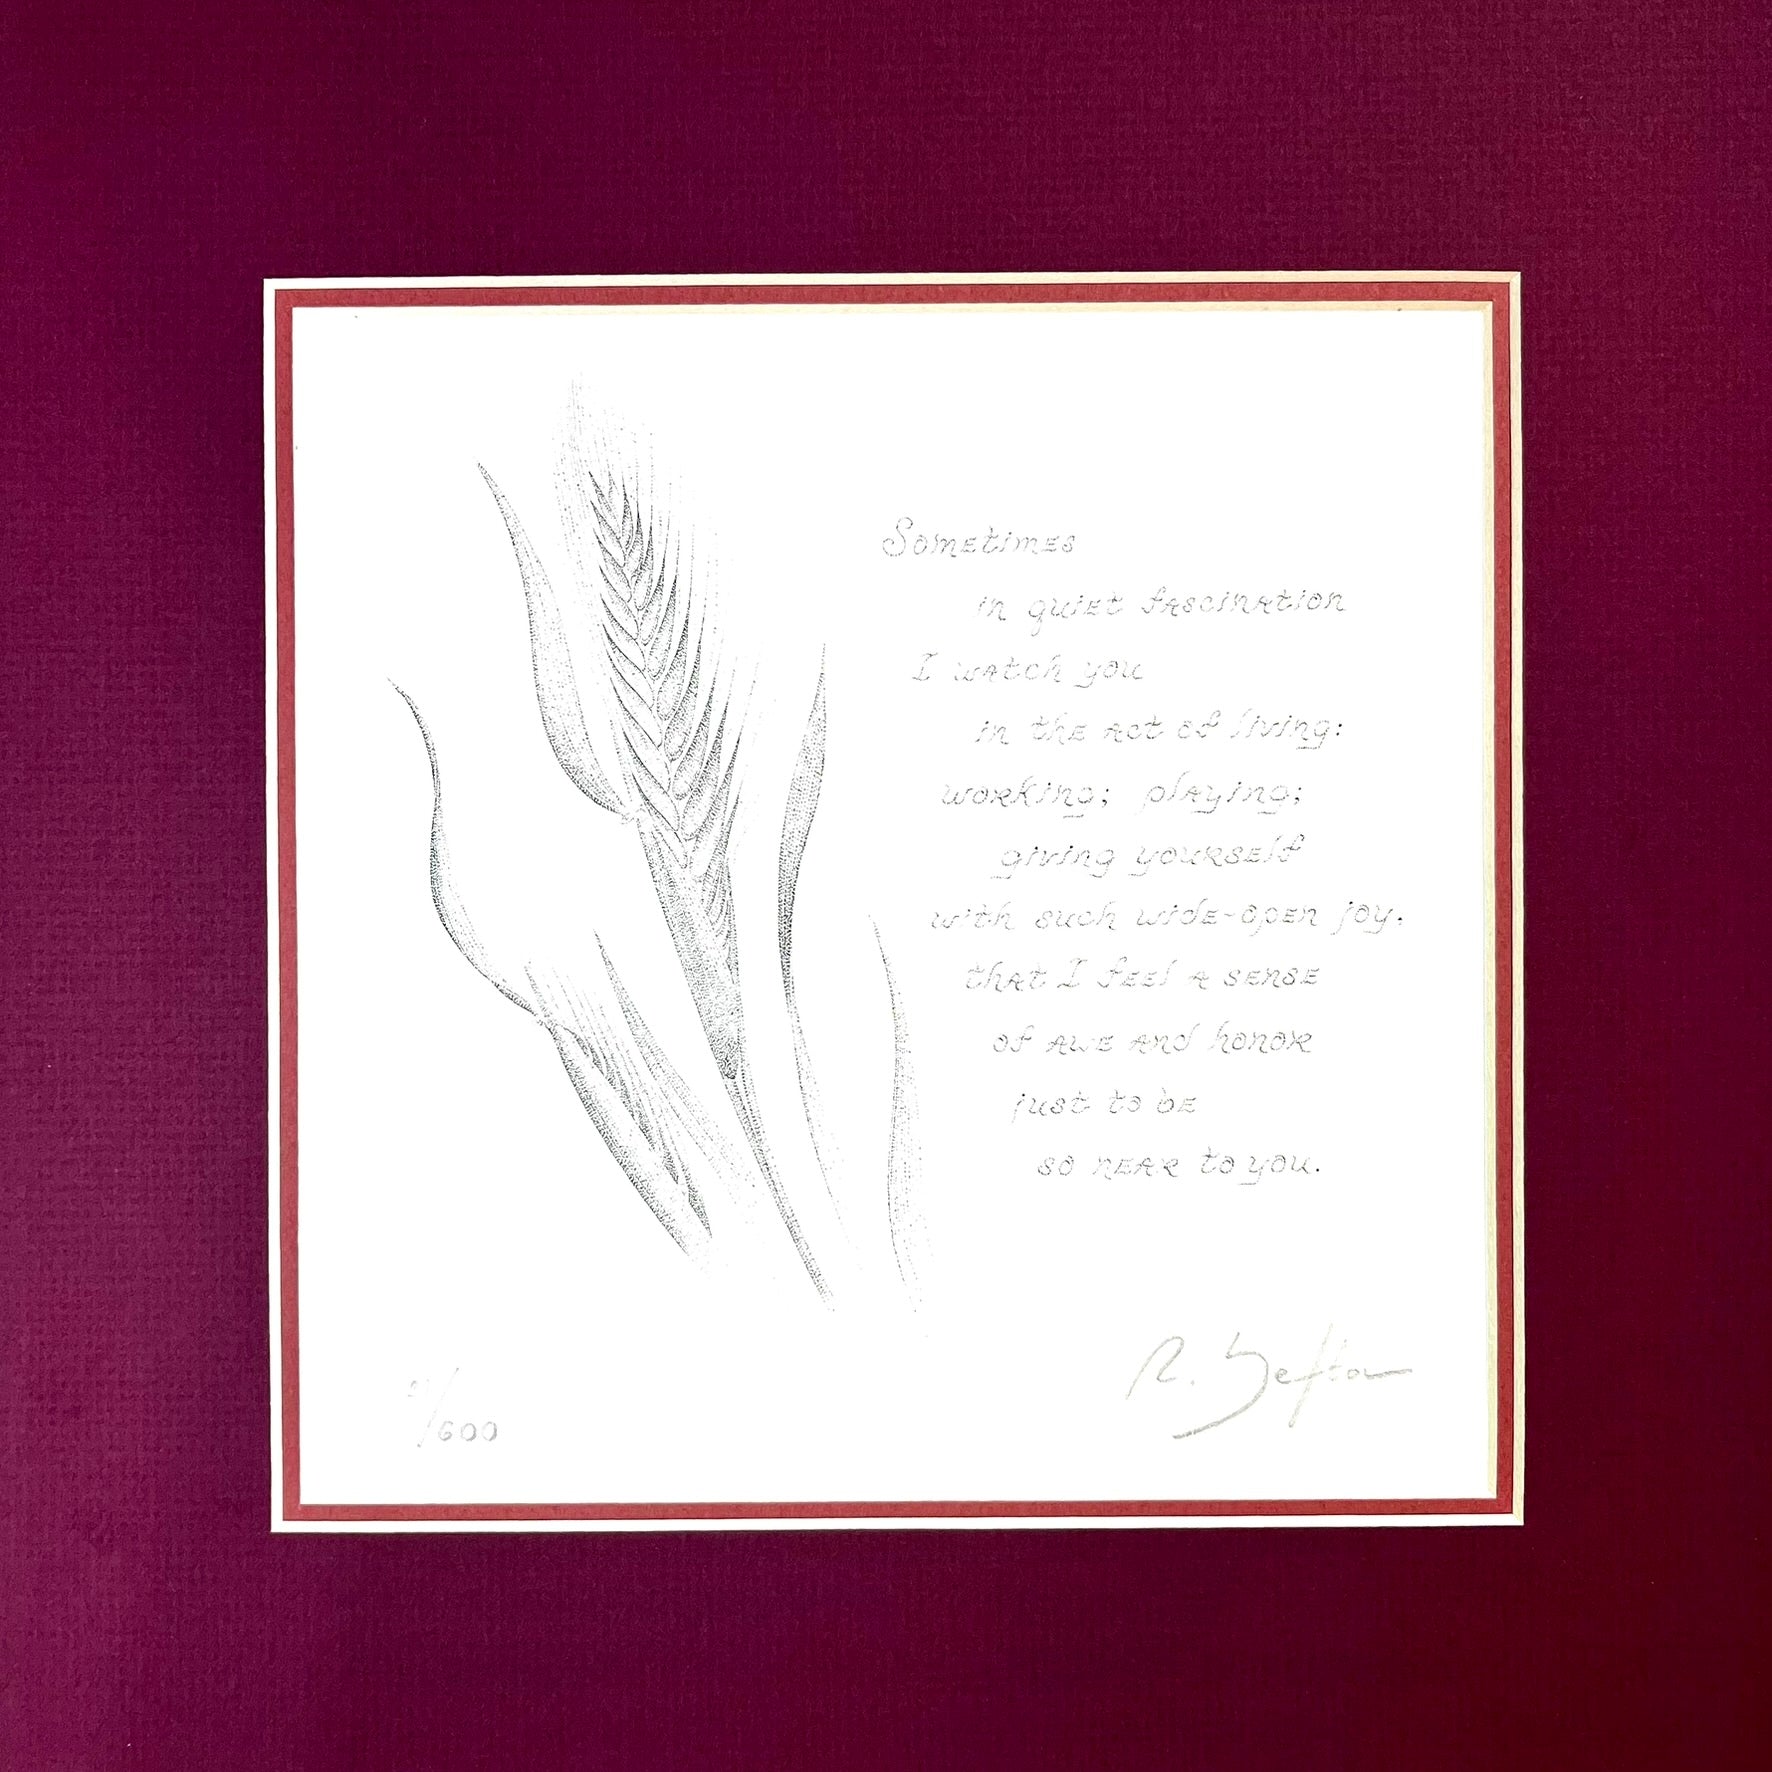 Sometimes
in quiet fascination
I watch you
in the act of living:
working; playing;
giving yourself
with such wide-open joy.
that I feel a sense
of awe and honor
just to be
so near to you.
R.
/600